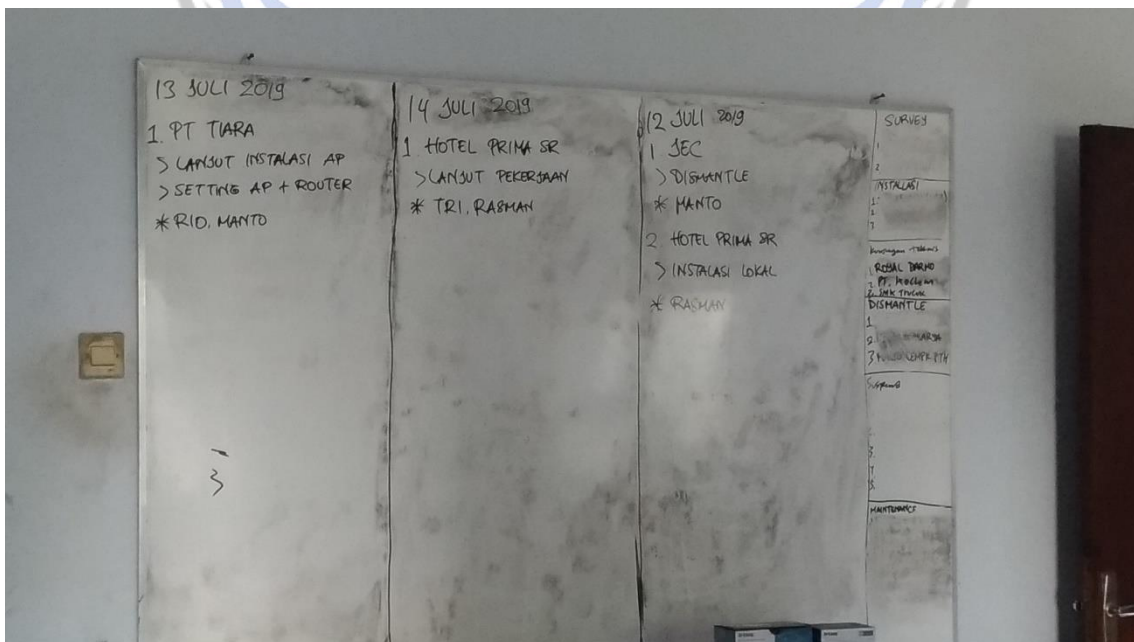 13 JULI 2019
1. PT TIARA
> LANJUT INSTALASI AP
> SETTING AP + ROUTER
* RIO, MANTO
3
14 JULI 2019
1 HOTEL PRIMA SR
> LANJUT PEKERJAAN
* TRI, RASMAN
12 JULI 2019
1 JEC
> DISMANTLE
* MANTO
2. HOTEL PRIMA SR
> INSTALASI LOKAL
* RASMAN
SURVEY
1
2
INSTALLASI
1.
2
3
Kunjungan teknis
1. ROYAL DARMO
2. PT.
3. SMK
DISMANTLE
1
2.
3
3.
MAINTENANCE